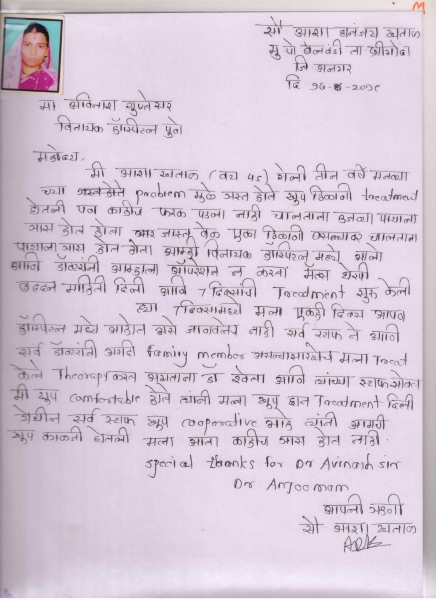 M
सौ आशा धनंजय खताळ
मु पो बेलवंडी ता श्रीगोंदा
जि अ नगर
दि
मा अविनाश गुप्तेसर
विनायक हॉस्पिटल पुणे
महोदय,
मी आशा खताळ (वय 45) गेली तीन वर्षे मणक्या
च्या problem मुळे त्रस्त होते खूप ठिकाणी treatment
घेतली पण काहीच फरक पडला नाही चालताना डाव्या पायाला
त्रास होत होता जास्त वेळ एका ठिकाणी चालताना
पायाला त्रास होत होता आम्ही विनायक हॉस्पिटल मध्ये आलो
आणि डॉक्टरांनी आम्हाला ऑपरेशन न करता
बद्दल माहिती दिली आणि 7 दिवसांची Treatment सुरू केली
ह्या 7 दिवसामध्ये मला एकही दिवस आपण
हॉस्पिटल मध्ये आहोत असे जाणवलं नाही सर्व स्टाफ ने आणि
सर्व डॉक्टरांनी अगदी family member असल्यासारखेच मला Treat
केले Therapy करत असताना डॉ श्वेता आणि त्यांच्या स्टाफ सोबत
मी खूप comfortable होते त्यांनी मला खूप छान Treatment दिली
येथील सर्व स्टाफ खूप cooperative आहे त्यांनी आमची
खूप काळजी घेतली मला आता काहीच त्रास होत नाही.
special thanks for Dr Avinash sir
Dr Anjooman
आपली ऋणी
सौ आशा खताळ